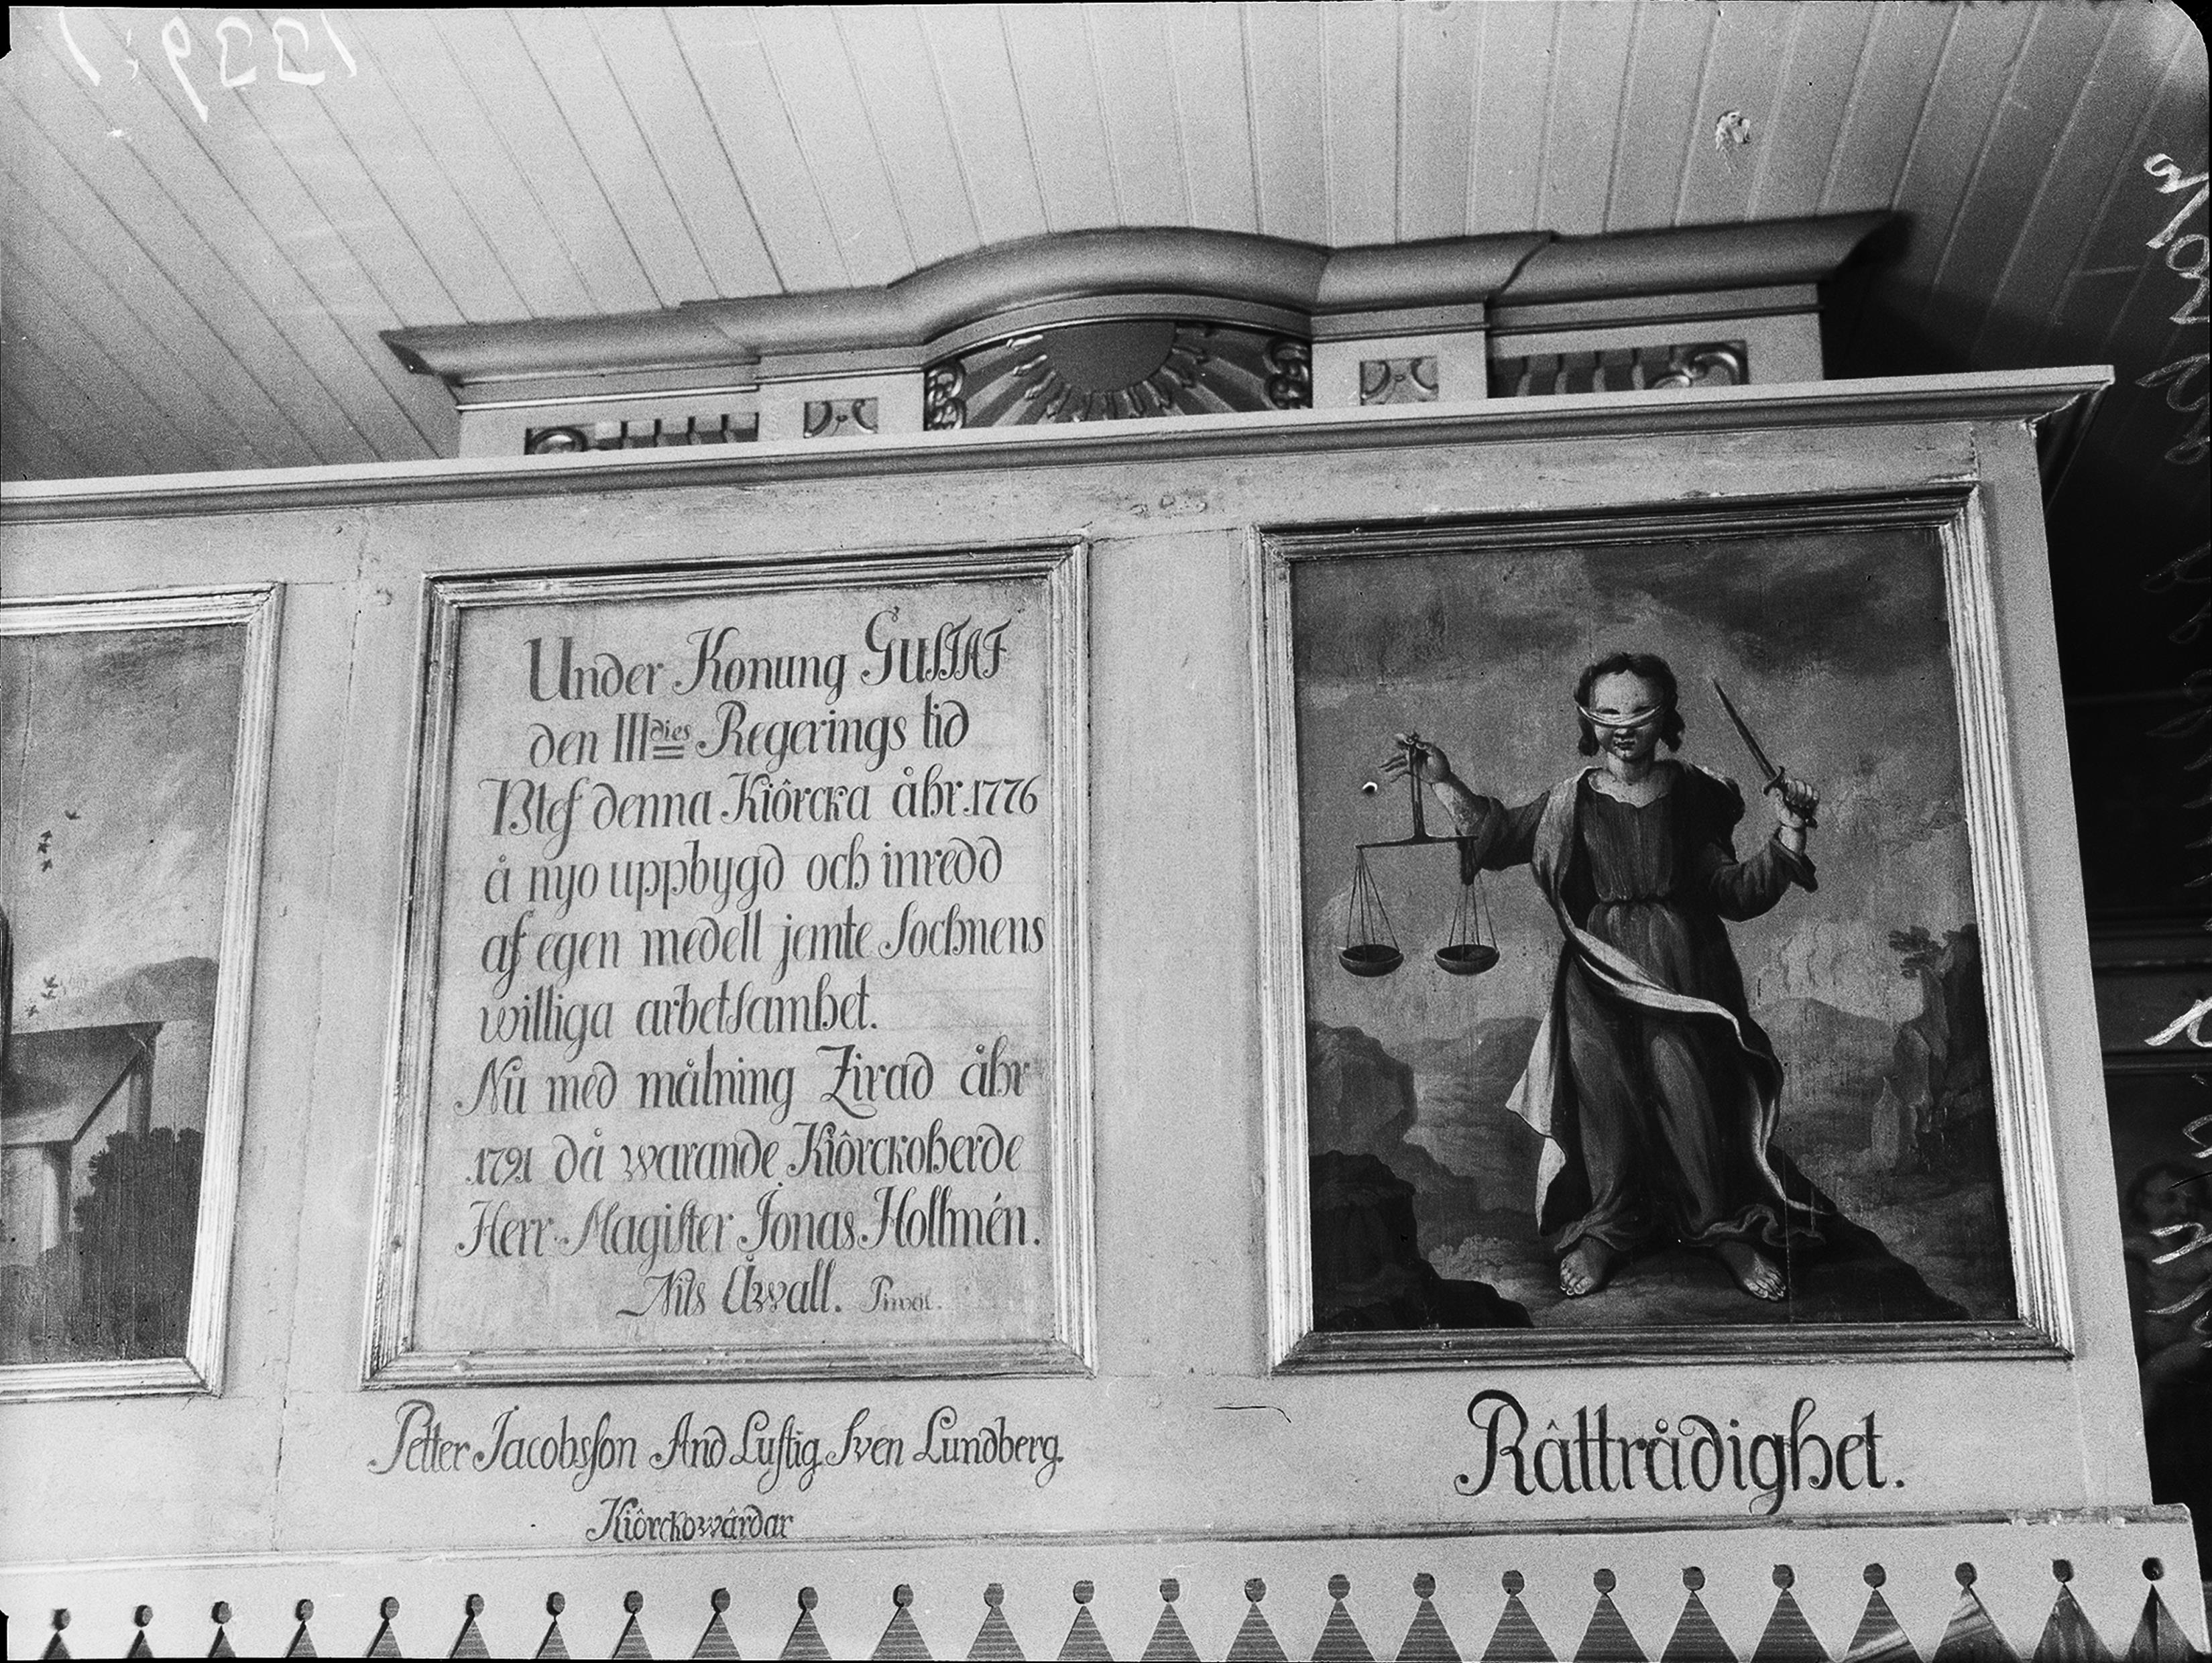 Under Konung GUSTAF
den III dies Regerings tid
Blef denna Kiôrcka åhr. 1776
å nyo uppbygd och inredd
af egen medell jemte Sochnens
williga arbetsamhet.
Nu med målning Zirad åhr
.1791 då warande Kiôrckoherde
Herr Magister Jonas Hollmén.
Nils Åwall. Pinxit.
Petter Jacobsson And Lustig Sven Lundberg.
Kiôrckowârdar
Râttrådighet.